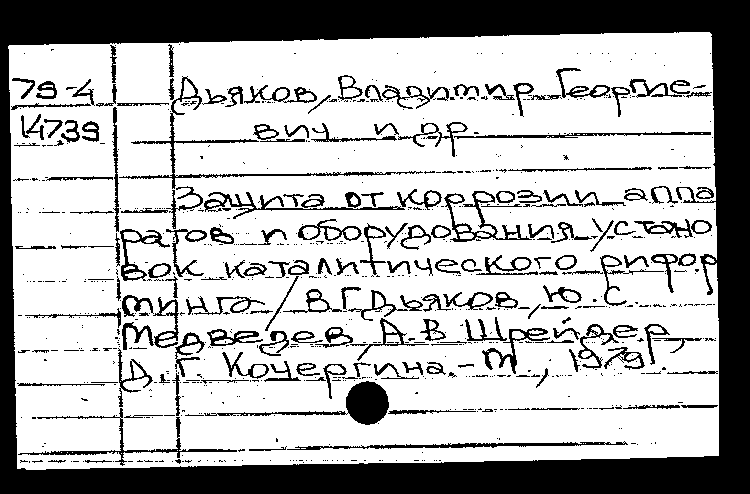 79-4 Дьяков, Владимир Георгие-
14739 вич и др.
Защита от коррозии аппа
ратов и оборудования устано
вок каталитического рифор
минга / В.Г.Дьяков, Ю.С.
Медведев, А.В Шрейдер,
Д.Г. Кочергина.-М., 1979.